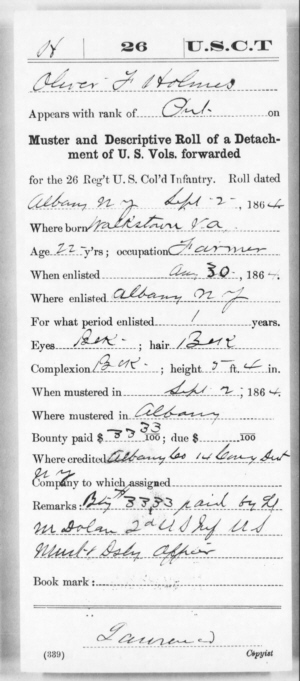 H 26 U.S.C.T
Oliver F Holmes
Appears with rank of Pvt. on
Muster and Descriptive Roll of a Detach-
ment of U. S. Vols. forwarded
for the 26 Reg't U. S. Col'd Infantry. Roll dated
Albany N Y Sept 2, 1864
Where born Va
Age 22 y'rs; occupation Farmer
When enlisted Aug 30, 1864.
Where enlisted Albany N Y
For what period enlisted 1 years.
Eyes Blk; hair Blk
Complexion Blk; height 5 ft. 4 in.
When mustered in Sept 2, 1864.
Where mustered in Albany
Bounty paid $ 33 33/100; due $ /100
Where credited Albany Co 14 Cong Dist
N Y
Company to which assigned
Remarks: Bty $ 33 33 paid by Lt
M Dolan 2d U S Inf U S
Must & Disb Officer
Book mark:
Lawrence
(339) Copyist